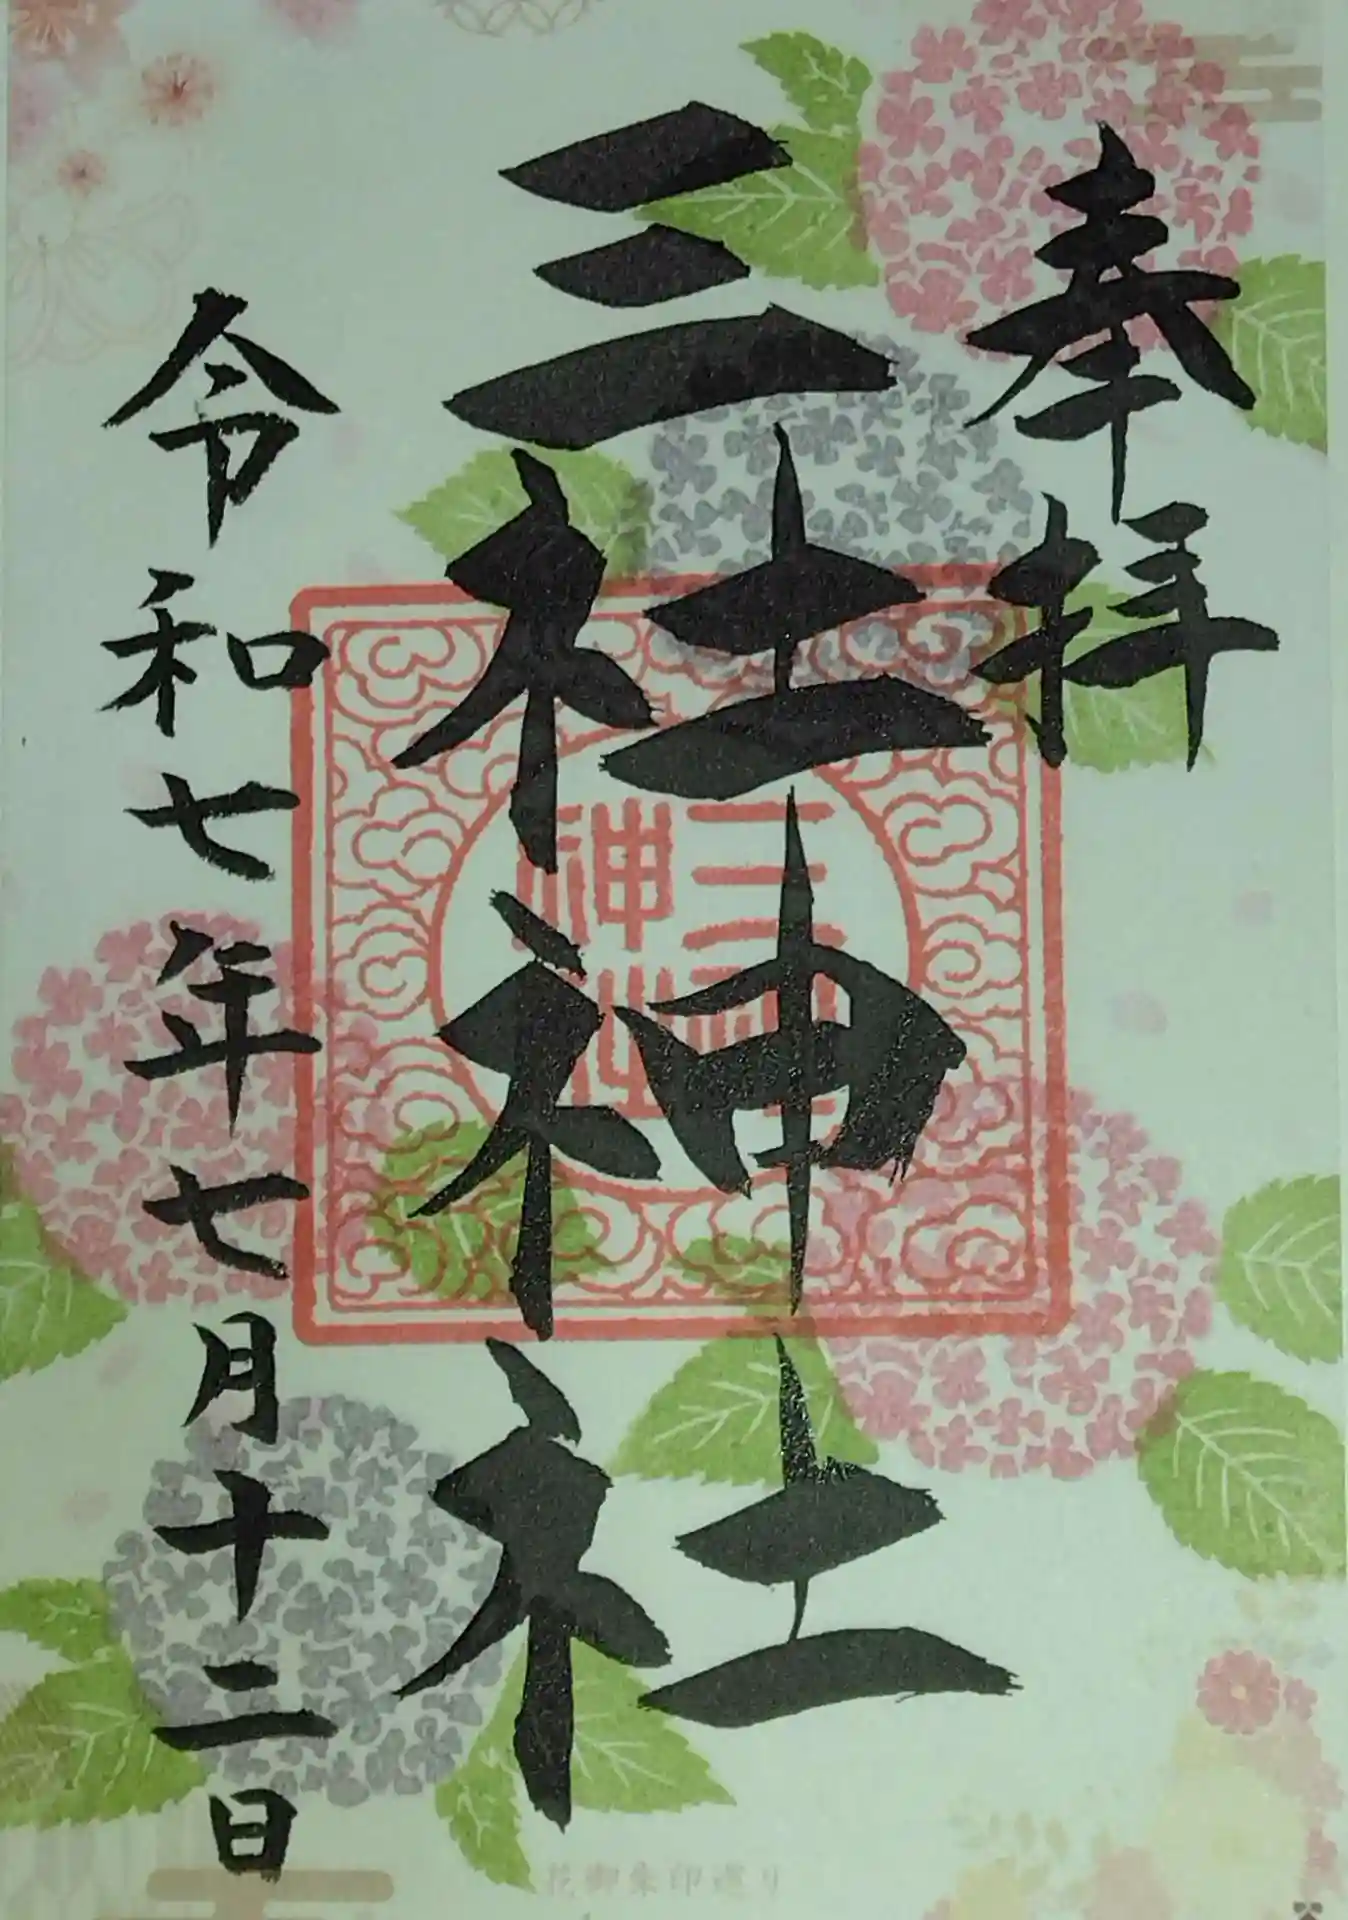 奉拝
三社神社
三社
神社
令和七年七月十二日
花御朱印巡り